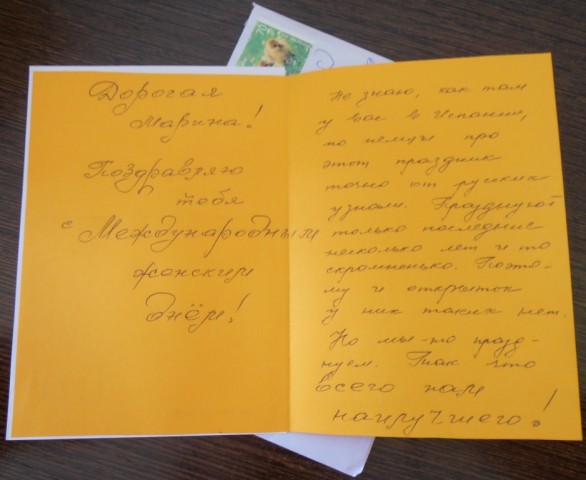 Дорогая
Марина!
Поздравляю
тебя
с Международным
женским
днём!
Не знаю, как там
у вас в Испании,
то немцы про
этот праздник
точно от русских
узнали. Празднуют
только последние
несколько лет и то
скромненько. Поэто-
му и открыток
у них таких нет.
Но мы-то празд-
нуем. Так что
всего нам
наилучшего!